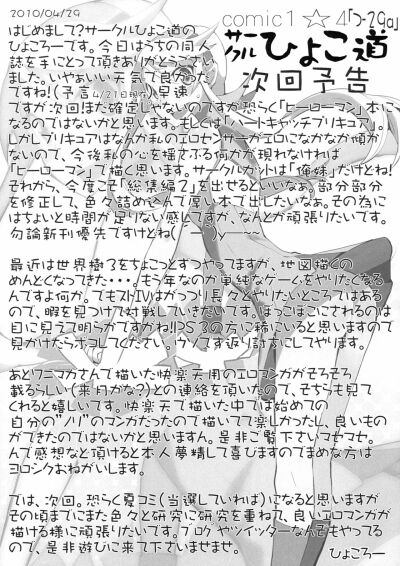 2010/04/29
comic1☆4「つ-29a」
サークル ひよこ道
次回予告
はじめまして?サークルひよこ道の
ひよころーです。今日はうちの同人
誌を手にとって頂きありがとうござい
ました。いやぁいい天気で良かった
ですね!(予言4/21日現在)早速
ですが次回!まだ確定じゃないのですが恐らく「ヒーローマン」本に
なるのではないかと思います。もしくは「ハートキャッチプリキュア」。
しかしプリキュアはなんか私のエロセンサーがエロになかなか傾か
ないので、今後私の心を揺さぶる何カが現れなければ
「ヒーローマン」で描く思います。サークルカットは「俺妹」だけどね!
それから、今度こそ「総集編2」を出せるといいなぁ。部分部分
を修正して、色々詰め込んで厚い本で出したいなぁ。その為に
はちょいと時間が足りない感じですが、なんとか頑張りたいです。
勿論新刊優先ですけどね(￣ー￣)y━~~
最近は世界樹3をちょこっとずつやってますが、地図描くの
めんとくなってきた・・・。もう年なのか単純なゲームをやりたくなる
んですよ何か。でもストIVはがっつり長々とやりたいところではある
ので、暇を見つけて対戦していきたいです。ぼっこぼこにされるのは
目に見えて明らかですがね!!PS3の方に稀にいると思いますので
見かけたらボコしてください。ウソです返り討ちにしてやります。
あとワニマガさんで描いた快楽天用のエロマンガがそろそろ
載るらしい(来月かな?)との連絡を頂いたので、そちらも見て
くれると嬉しいです。快楽天で描いた中では始めての
自分の"ノリ"のマンガだったので描いてて楽しかったし、良いもの
ができたのではないかと思いますん。是非ご覧下さいマセマセ。
んで感想など頂けると本人夢精して喜びますのでまめな方は
ヨロシクおねがいします。
では、次回。恐らく夏コミ(当選していれば)になると思いますが
その頃までにまた色々と研究に研究を重ねて、良いエロマンガが
描ける様に頑張りたいです。ブログやツイッターなんぞもやってる
ので、是非遊びに来て下さいませませ。
ひよころー